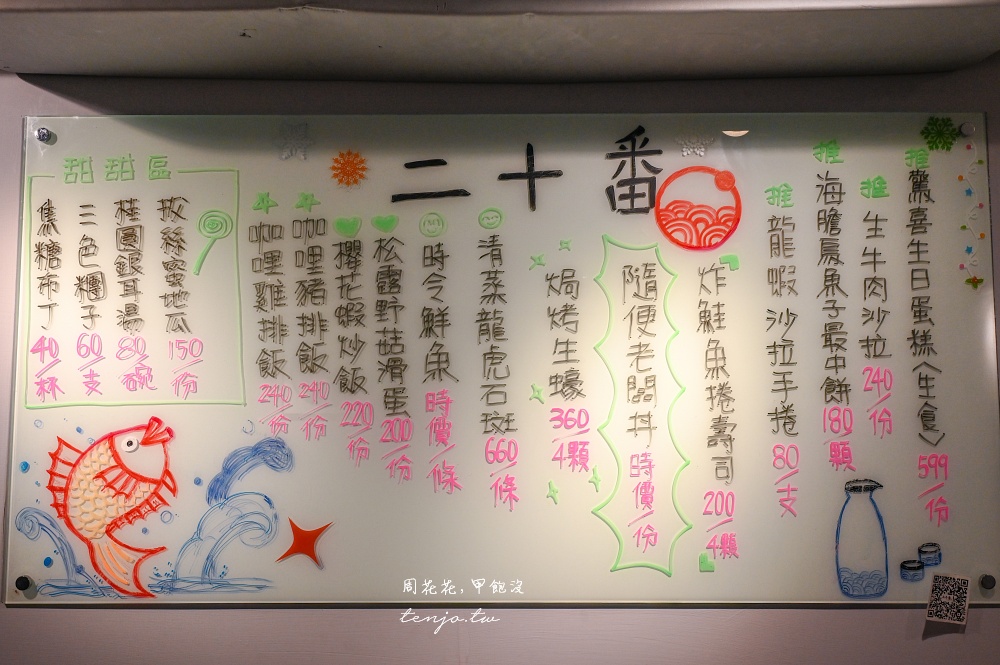 二十番
推驚喜生日蛋糕〈生食〉599/份
推生牛肉沙拉240/份
推海膽烏魚子最中餅180/顆
推龍蝦沙拉手捲80/支
炸鮭魚捲壽司200/4顆
隨便老闆丼時價/份
焗烤生蠔360/4顆
清蒸龍虎石斑660/條
時令鮮魚時價/條
松露野菇滑蛋200/份
櫻花蝦炒飯220/份
咖哩豬排飯240/份
咖哩雞排飯240/份
甜甜區
拔絲蜜地瓜150/份
桂圓銀耳湯80/碗
三色糰子60/支
焦糖布丁40/杯
周花花,甲飽沒
tenjo.tw